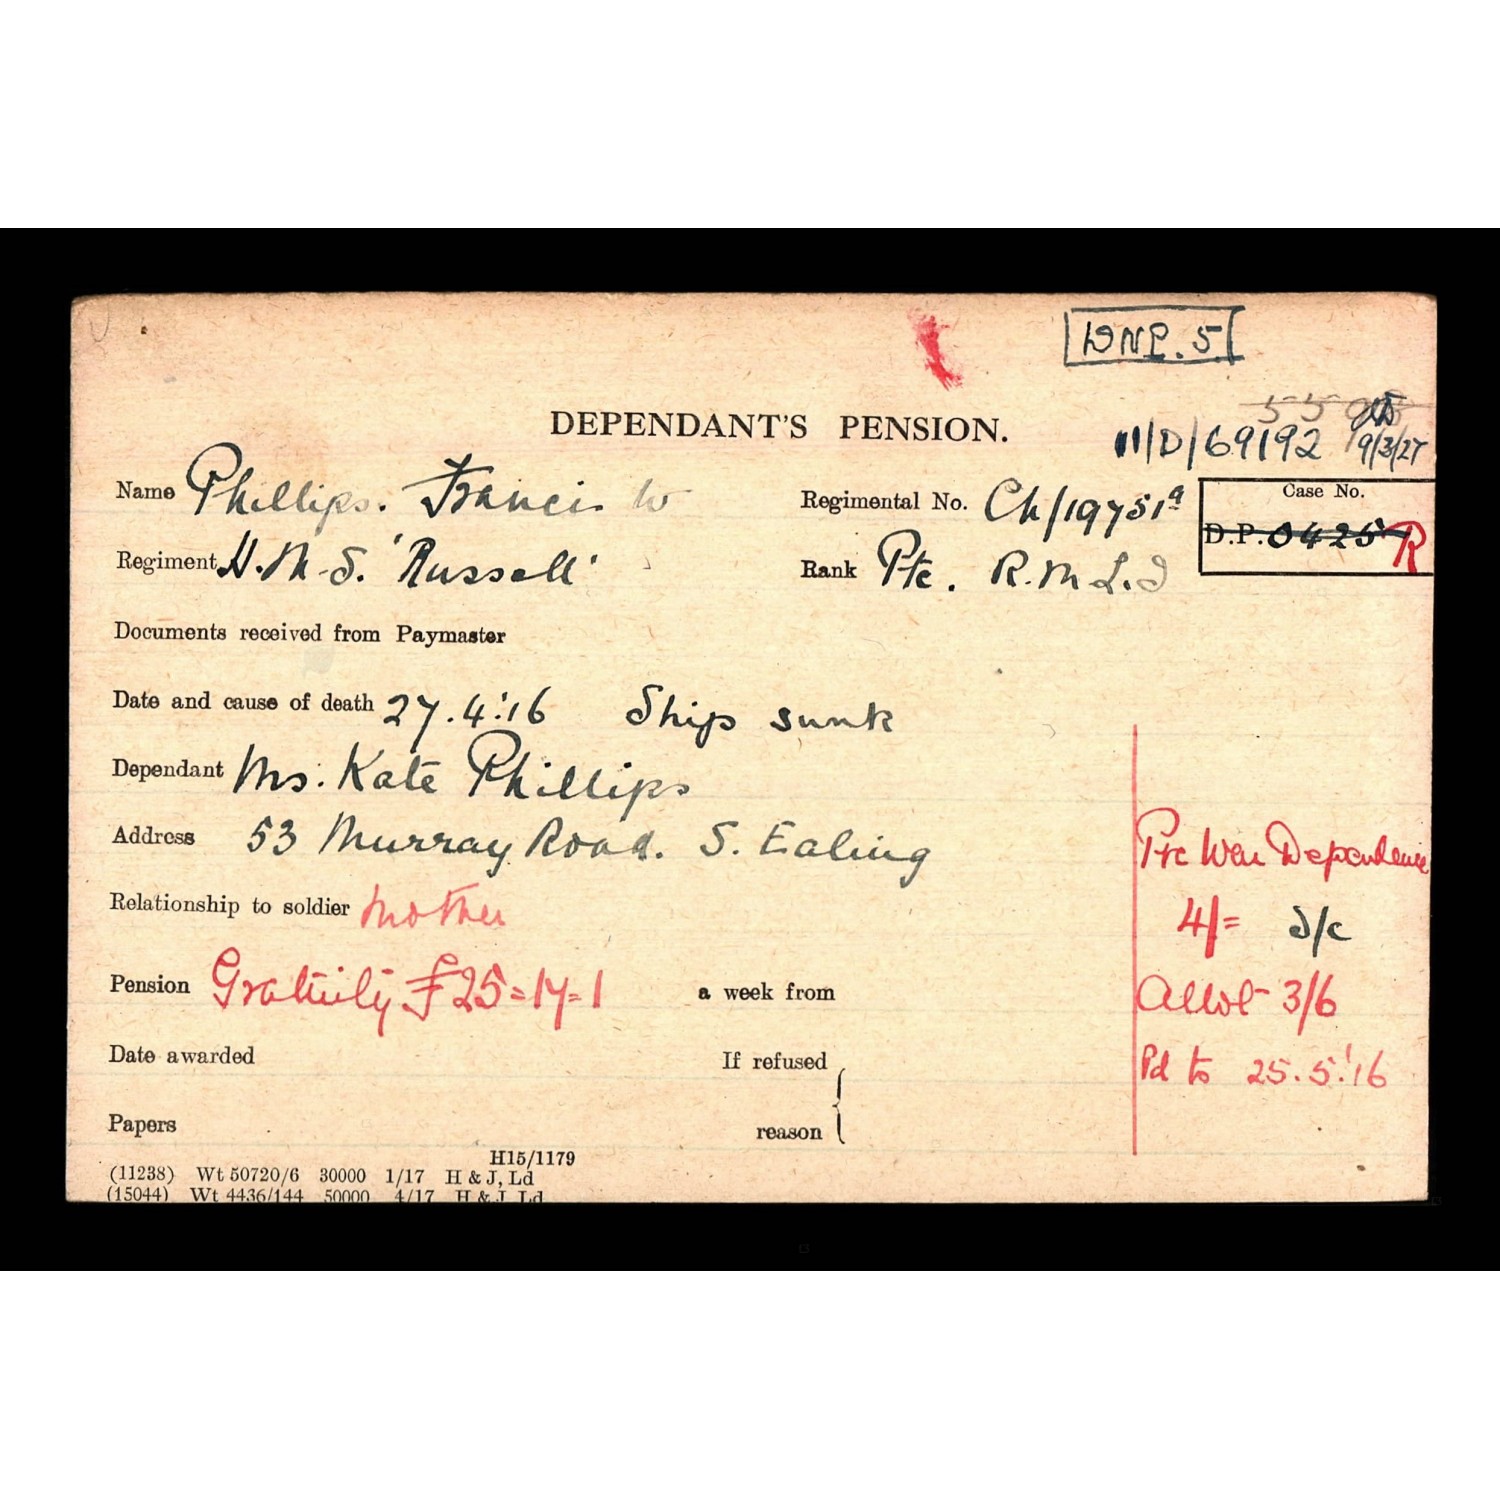 DNP. 5
DEPENDANT'S PENSION.
11/D/69192 9/3/27
Name Phillips. Francis W Regimental No. Ch/19751 Case No.
D.P. 0425 R
Regiment H.M.S. 'Russell' Rank Pte. R.M.L.I
Documents received from Paymaster
Date and cause of death 27.4.'16 Ship sunk
Dependant Mrs. Kate Phillips
Address 53 Murray Road. S. Ealing
Pre War Dependence
Relationship to soldier Mother
4/= S/c
Pension Gratuity £25=17=1 a week from
Allot 3/6
Date awarded If refused
Pd to 25.5.'16
Papers reason
H15/1179
(11238) Wt 50720/6 30000 1/17 H & J, Ld
(15044) Wt 4436/144 50000 4/17 H & J Ld